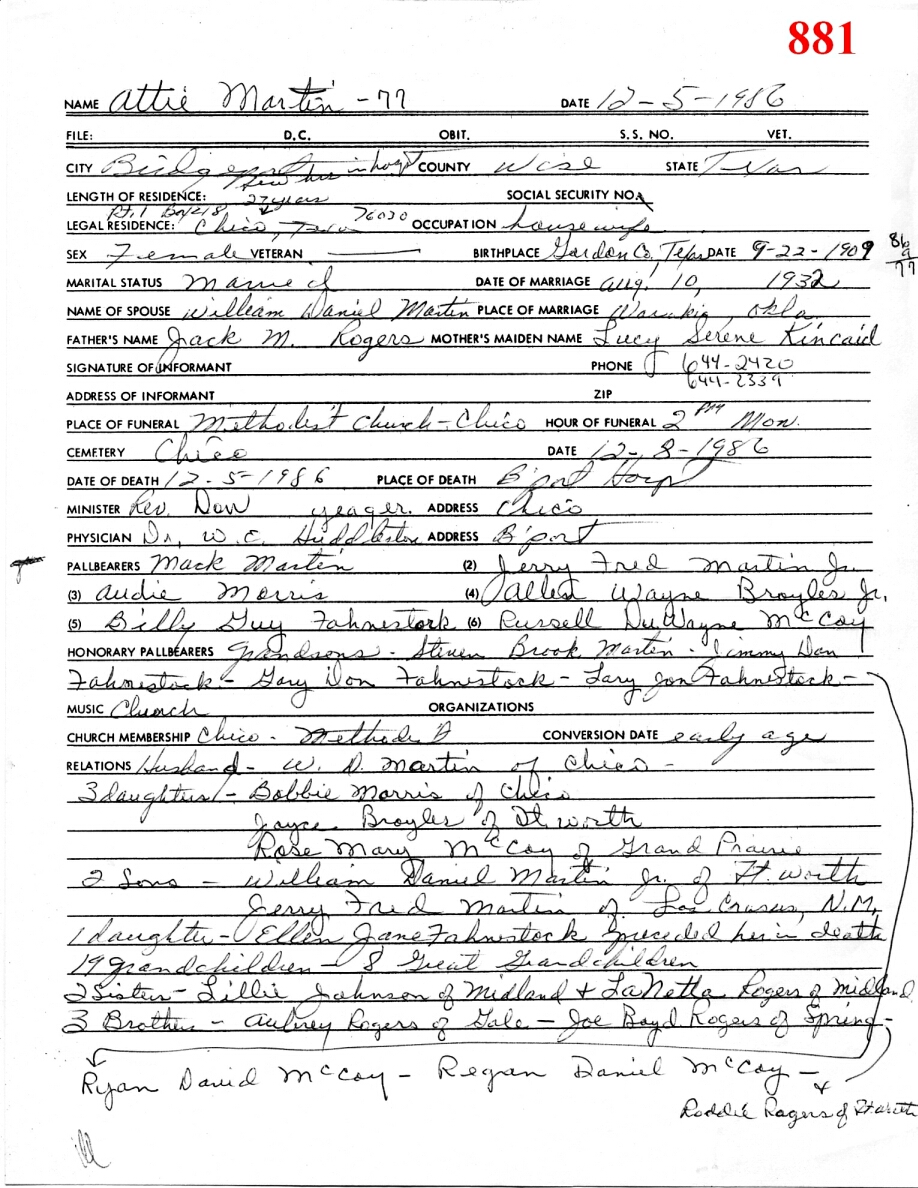 881
NAME Attie Martin - 77 DATE 12-5-1986
FILE: D.C. OBIT. S.S. NO. VET.
CITY Bridgeport COUNTY Wise STATE Texas
few hrs in hosp
LENGTH OF RESIDENCE: 27 years SOCIAL SECURITY NO.
Rt. 1 Box 218 76030
LEGAL RESIDENCE: Chico, Texas OCCUPATION housewife
SEX Female VETERAN BIRTHPLACE Gordon Co, Texas DATE 9-22-1909
86
9
77
MARITAL STATUS Married DATE OF MARRIAGE Aug. 10, 1932
NAME OF SPOUSE William Daniel Martin PLACE OF MARRIAGE Okla
FATHER'S NAME Jack M. Rogers MOTHER'S MAIDEN NAME Lucy Serene Kincaid
SIGNATURE OF INFORMANT PHONE 644-2420
644-2339
ADDRESS OF INFORMANT ZIP
PLACE OF FUNERAL Methodist Church - Chico HOUR OF FUNERAL 2 PM Mon.
CEMETERY Chico DATE 12-8-1986
DATE OF DEATH 12-5-1986 PLACE OF DEATH B'port Hosp
MINISTER Rev. Don Yeager. ADDRESS Chico
PHYSICIAN Dr. W. E. Huddleston ADDRESS B'port
PALLBEARERS Mack Martin (2) Jerry Fred Martin Jr.
(3) Audie Morris (4) Allen Wayne Broyles Jr.
(5) Billy Guy Fahnestock (6) Russell DuWayne McCoy
HONORARY PALLBEARERS Grandsons - Steven Brook Martin - Jimmy Dan
Fahnestock - Gary Don Fahnestock - Lary Jon Fahnestock -
MUSIC Church ORGANIZATIONS
CHURCH MEMBERSHIP Chico - Methodist CONVERSION DATE early age
RELATIONS Husband - W. D. Martin of Chico -
3 daughters - Bobbie Morris of Chico
Joyce Broyles of Ft Worth
Rose Mary McCoy of Grand Prairie
2 Sons - William Daniel Martin Jr. of Ft. Worth
Jerry Fred Martin of Las Cruses, N.M.
1 daughter - Ellen Jane Fahnestock preceded her in death
19 grandchildren - 8 Great Grandchildren
2 Sisters - Lillie Johnson of Midland & LaNetta Rogers of Midland
3 Brothers - Aubrey Rogers of Gale - Joe Boyd Rogers of Spring -
Ryan David McCoy - Regan Daniel McCoy -
Roddie Rogers of Ft. Worth